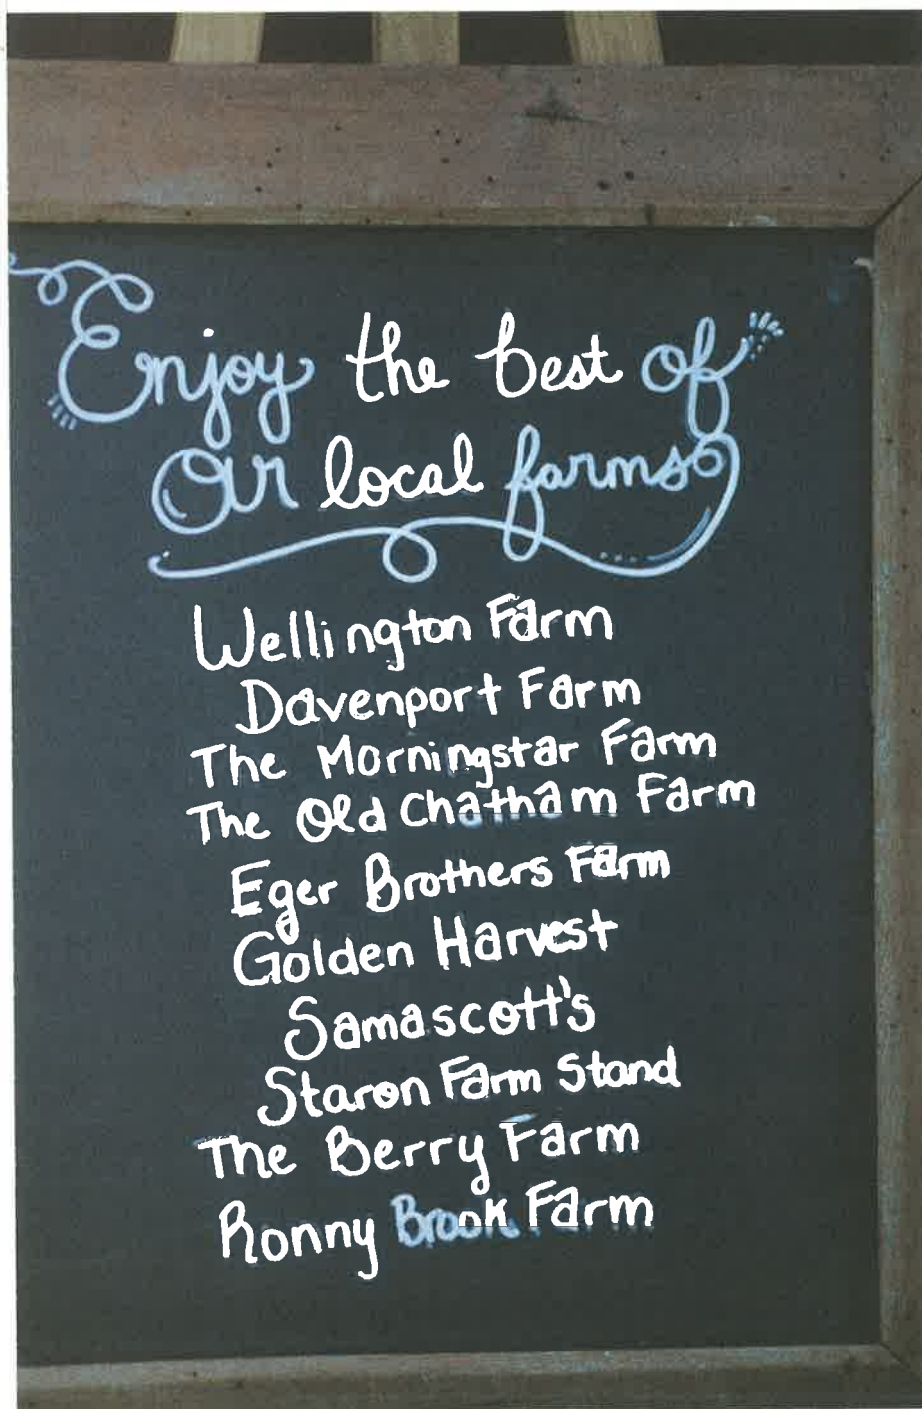 Enjoy the best of
our local farms
Wellington Farm
Davenport Farm
The Morningstar Farm
The Old Chatham Farm
Eger Brothers Farm
Golden Harvest
Samascott's
Staron Farm Stand
The Berry Farm
Ronny Brook Farm